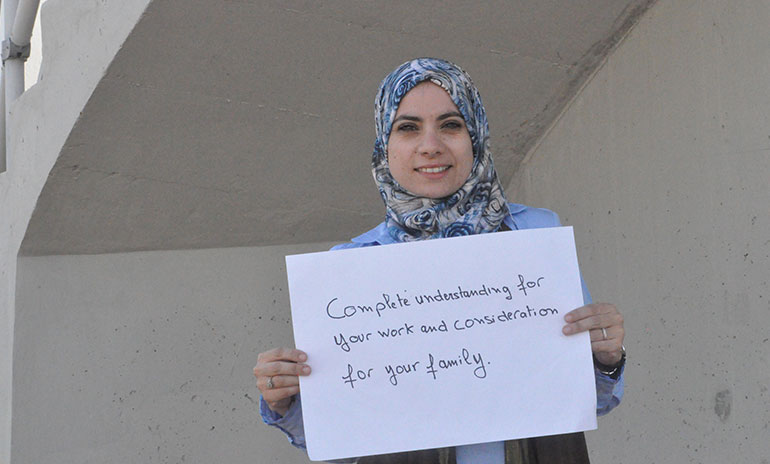 Complete understanding for
your work and consideration
for your family.